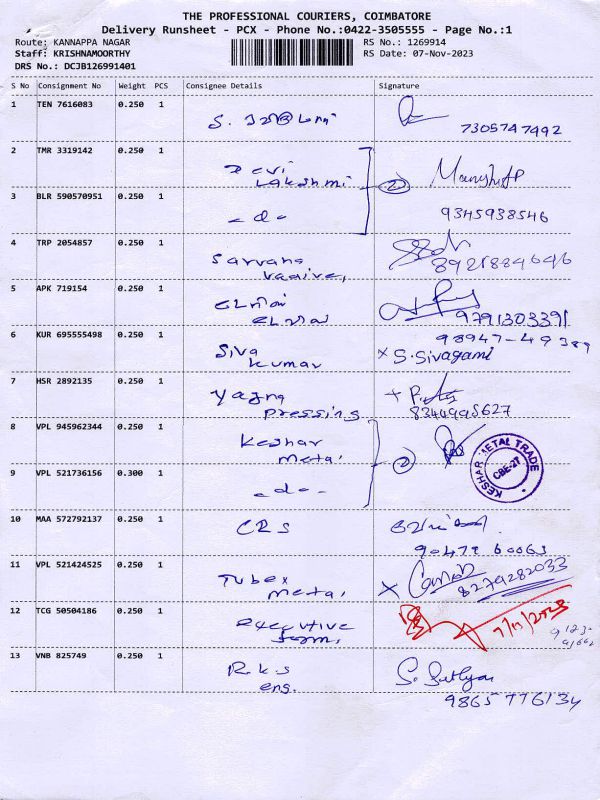 THE PROFESSIONAL COURIERS, COIMBATORE
Delivery Runsheet - PCX - Phone No.:0422-3505555 - Page No.:1
Route: KANNAPPA NAGAR RS No.: 1269914
Staff: KRISHNAMOORTHY RS Date: 07-Nov-2023
DRS No.: DCJB126991401
S No Consignment No Weight PCS Consignee Details Signature
1 TEN 7616083 0.250 1
S. 7305747492
2 TMR 3319142 0.250 1
Devi
Lakshmi 2
3 BLR 590570951 0.250 1
- d - 9345938546
4 TRP 2054857 0.250 1
Sarvana 8921884646
5 APK 719154 0.250 1
9791303391
6 KUR 695555498 0.250 1 98947-49389
Siva
kumar x S. Sivagami
7 HSR 2892135 0.250 1
Yagna
pressing 8344995627
8 VPL 945962344 0.250 1
Keshar
metal 2
KESHAR METAL TRADE
CBE-27
9 VPL 521736156 0.300 1
- d -
10 MAA 572792137 0.250 1
CRS
90479 60063
11 VPL 521424525 0.250 1
Tubex
metal x 8279282033
12 TCG 50504186 0.250 1
executive
7/11/2023
13 VNB 825749 0.250 1
R.k.s
eng. S.
9865776134